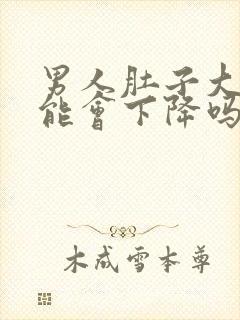 男人肚子大
能會下降吗
木成雪本尊